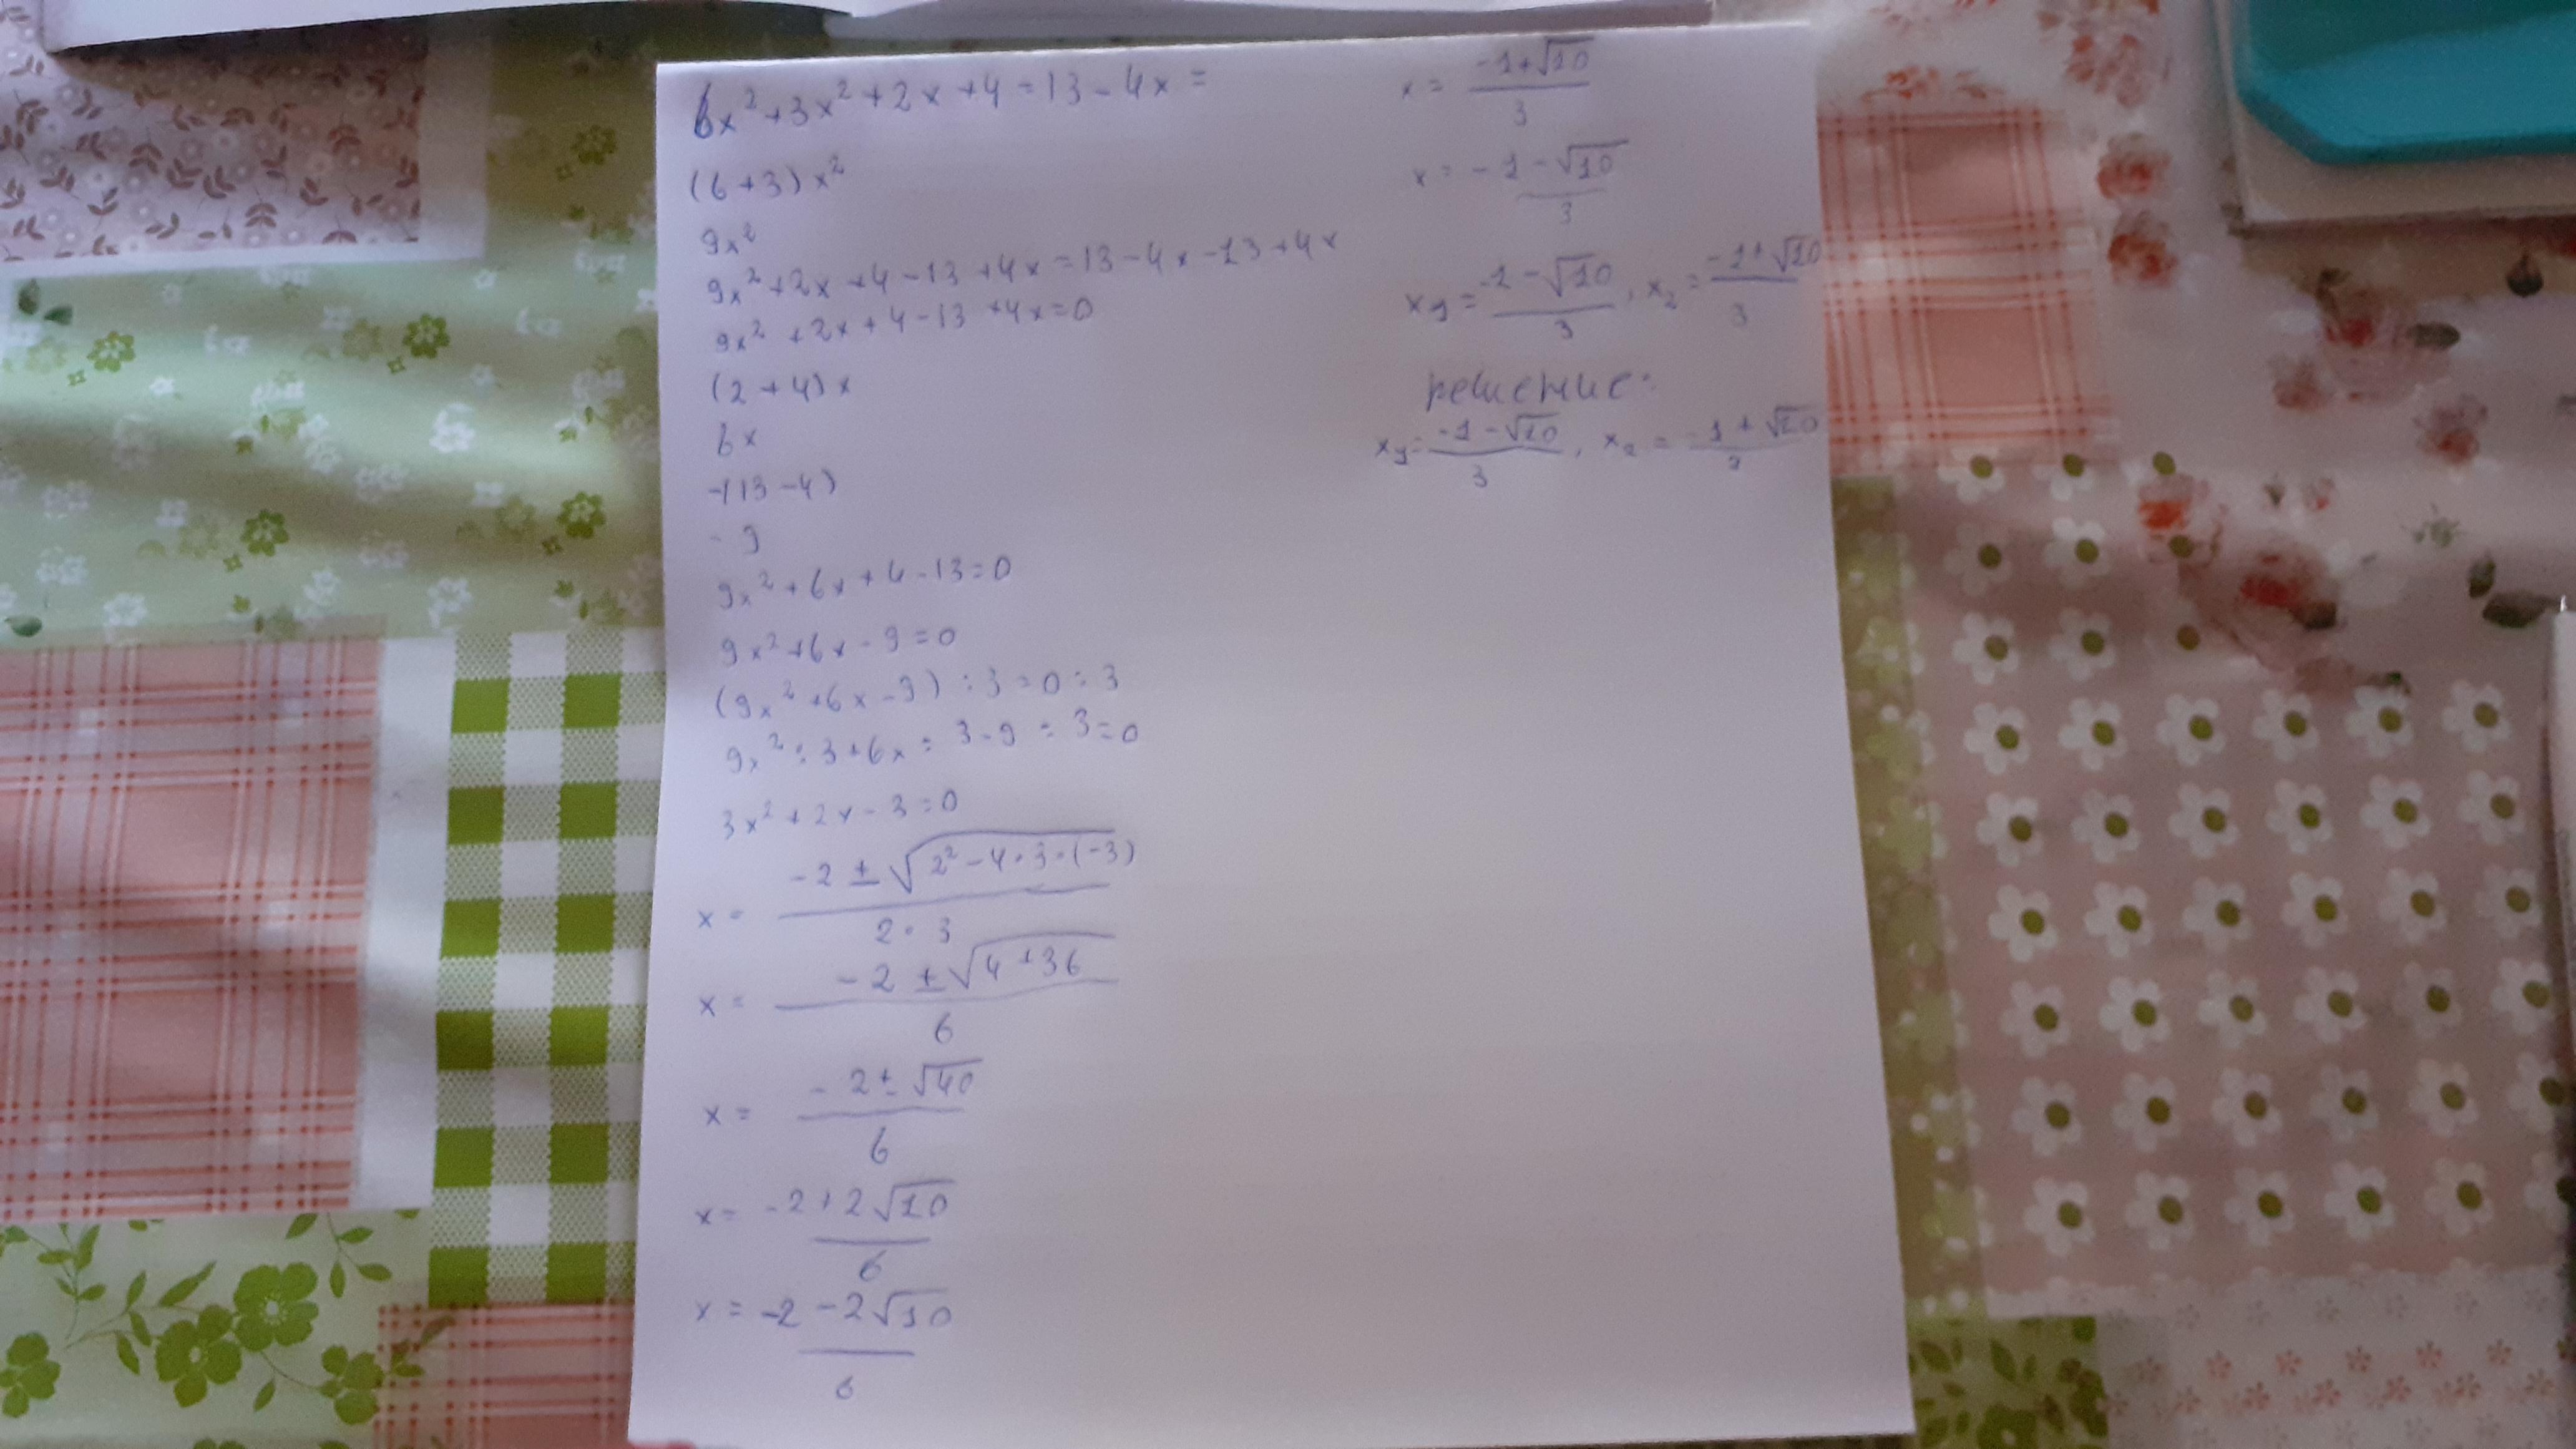 6x² + 3x² + 2x + 4 = 13 - 4x =
(6 + 3) x²
9x²
9x² + 2x + 4 - 13 + 4x = 13 - 4x - 13 + 4x
9x² + 2x + 4 - 13 + 4x = 0
(2 + 4) x
6x
-(13 - 4)
- 9
9x² + 6x + 4 - 13 = 0
9x² + 6x - 9 = 0
(9x² + 6x - 9) : 3 = 0 : 3
9x² : 3 + 6x : 3 - 9 : 3 = 0
3x² + 2x - 3 = 0
x = (-2 ± √(2² - 4 · 3 · (-3))) / (2 · 3)
x = (-2 ± √(4 + 36)) / 6
x = (-2 ± √40) / 6
x = (-2 + 2√10) / 6
x = (-2 - 2√10) / 6
x = (-1 + √10) / 3
x = (-1 - √10) / 3
x₁ = (-1 - √10) / 3, x₂ = (-1 + √10) / 3
решение:
x₁ = (-1 - √10) / 3, x₂ = (-1 + √10) / 3